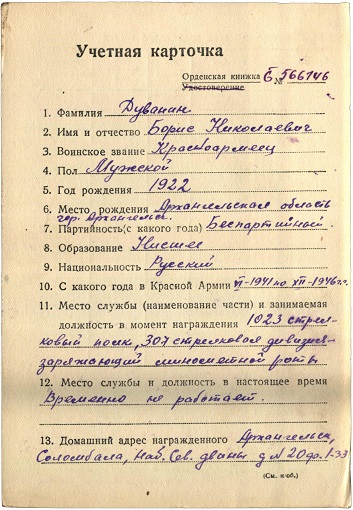 Учетная карточка
Орденская книжка Б № 566146
Удостоверение
1. Фамилия Дуванин
2. Имя и отчество Борис Николаевич
3. Воинское звание Красноармеец
4. Пол Мужской
5. Год рождения 1922
6. Место рождения Архангельская область
гор. Архангельск
7. Партийность (с какого года) Беспартийный
8. Образование Низшее
9. Национальность Русский
10. С какого года в Красной Армии VI-1941 по XII-1946 г.
11. Место службы (наименование части) и занимаемая
должность в момент награждения 1023 стрел-
ковый полк, 307 стрелковая дивизия
заряжающий минометной роты
12. Место службы и должность в настоящее время
Временно не работает.
13. Домашний адрес награжденного Архангельск,
Соломбала, Наб. Сев. двины д. N 20
(См. н/об.)